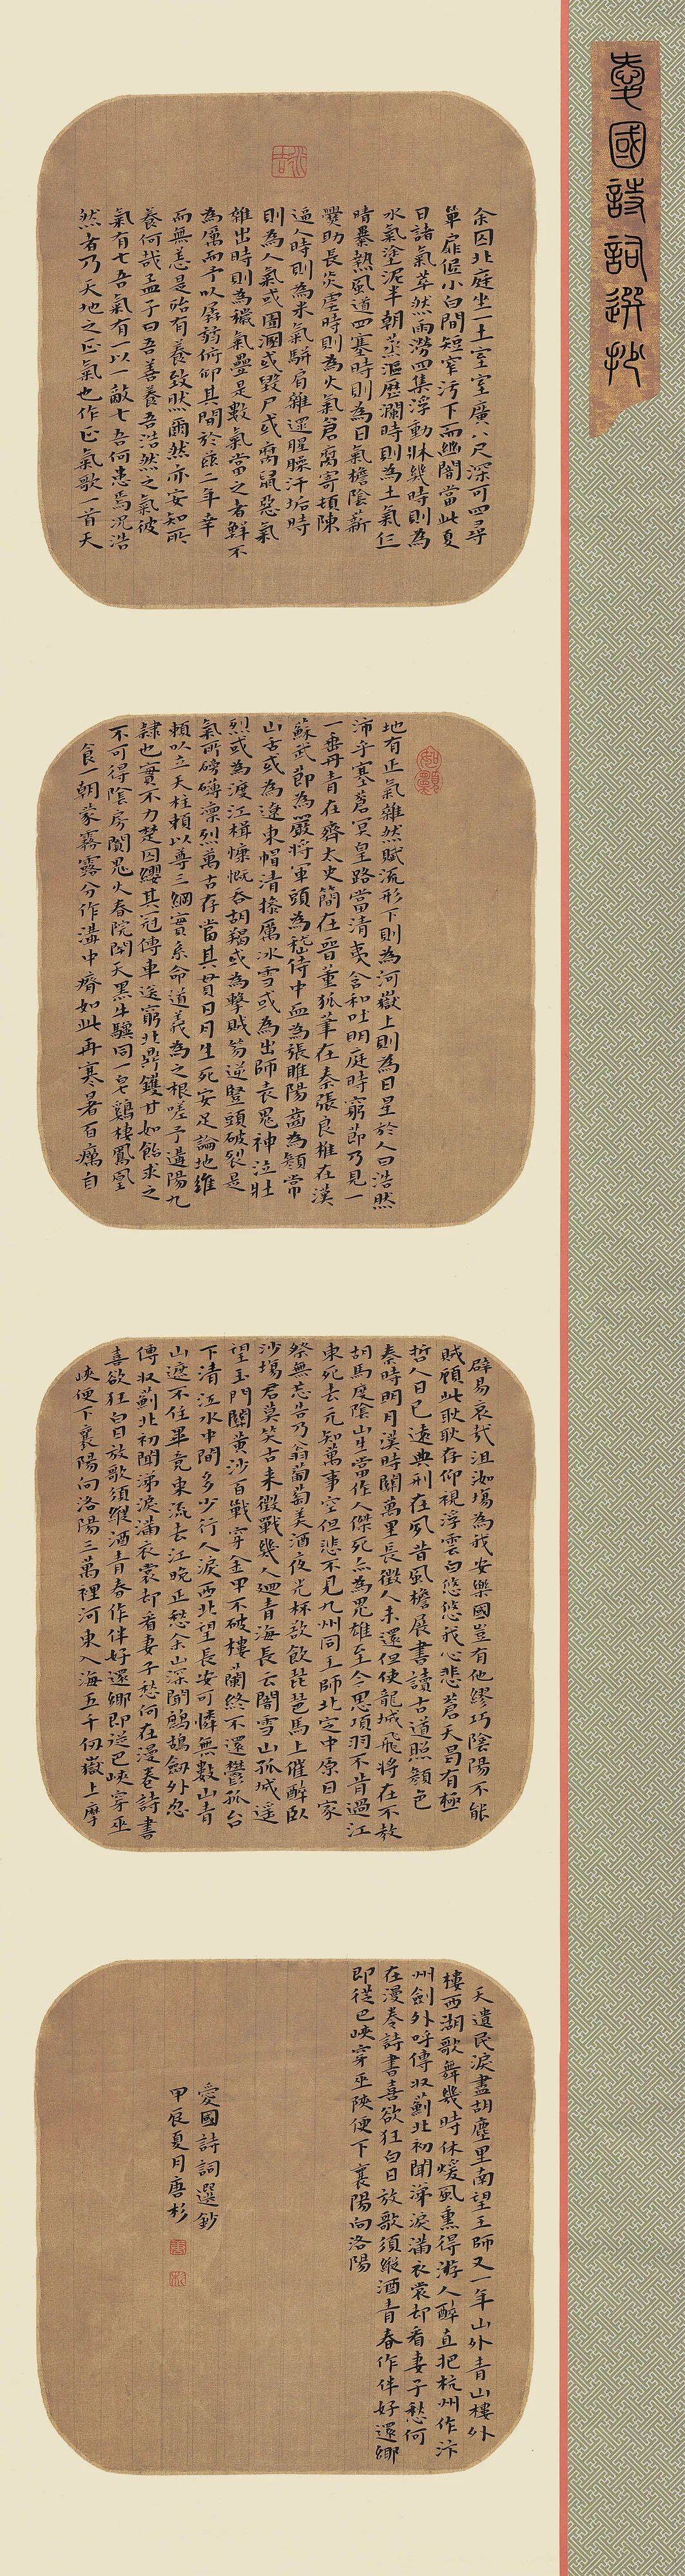 愛國詩詞選抄
余囚北庭坐一土室室廣八尺深可四尋
單扉低小白間短窄污下而幽闇當此夏
日諸氣萃然雨潦四集浮動牀幾時則為
水氣塗泥半朝蒸漚歷瀾時則為土氣乍
晴暴熱風道四塞時則為日氣檐陰薪
爨助長炎虐時則為火氣倉腐寄頓陳
逼人時則為米氣駢肩雜遝腥臊汗垢時
則為人氣或圊溷或毀尸或腐鼠惡氣
雜出時則為穢氣疊是數氣當之者鮮不
為厲而予以孱弱俯仰其間於茲二年幸
而無恙是殆有養致然爾然亦安知所
養何哉孟子曰吾善養吾浩然之氣彼
氣有七吾氣有一以一敵七吾何患焉況浩
然者乃天地之正氣也作正氣歌一首天
地有正氣雜然賦流形下則為河嶽上則為日星於人曰浩然
沛乎塞蒼冥皇路當清夷含和吐明庭時窮節乃見一
一垂丹青在齊太史簡在晉董狐筆在秦張良椎在漢
蘇武節為嚴將軍頭為嵇侍中血為張睢陽齒為顏常
山舌或為遼東帽清操厲冰雪或為出師表鬼神泣壯
烈或為渡江楫慷慨吞胡羯或為擊賊笏逆豎頭破裂是
氣所磅礴凜烈萬古存當其貫日月生死安足論地維
賴以立天柱賴以尊三綱實系命道義為之根嗟予遘陽九
隸也實不力楚囚纓其冠傳車送窮北鼎鑊甘如飴求之
不可得陰房闐鬼火春院閉天黑牛驥同一皂鷄棲鳳凰
食一朝蒙霧露分作溝中瘠如此再寒暑百癘自
辟易哀哉沮洳場為我安樂國豈有他繆巧陰陽不能
賊顧此耿耿存仰視浮雲白悠悠我心悲蒼天曷有極
哲人日已遠典刑在夙昔風檐展書讀古道照顏色
秦時明月漢時關萬里長徵人未還但使龍城飛將在不教
胡馬度陰山生當作人傑死亦為鬼雄至今思項羽不肯過江
東死去元知萬事空但悲不見九州同王師北定中原日家
祭無忘告乃翁葡萄美酒夜光杯欲飲琵琶馬上催醉臥
沙場君莫笑古來徵戰幾人迴青海長云闇雪山孤城遥
望玉門關黃沙百戰穿金甲不破樓蘭終不還鬱孤台
下清江水中間多少行人淚西北望長安可憐無數山青
山遮不住畢竟東流去江晚正愁余山深聞鷓鴣劍外忽
傳收薊北初聞涕淚滿衣裳却看妻子愁何在漫卷詩書
喜欲狂白日放歌須縱酒青春作伴好還鄉即從巴峽穿巫
峽便下襄陽向洛陽三萬裡河東入海五千仞嶽上摩
天遺民淚盡胡塵里南望王師又一年山外青山樓外
樓西湖歌舞幾時休煖風熏得游人醉直把杭州作汴
州劍外呼傳收薊北初聞涕淚滿衣裳却看妻子愁何
在漫卷詩書喜欲狂白日放歌須縱酒青春作伴好還鄉
即從巴峽穿巫陝便下襄陽向洛陽
愛國詩詞選鈔
甲辰夏月唐杉